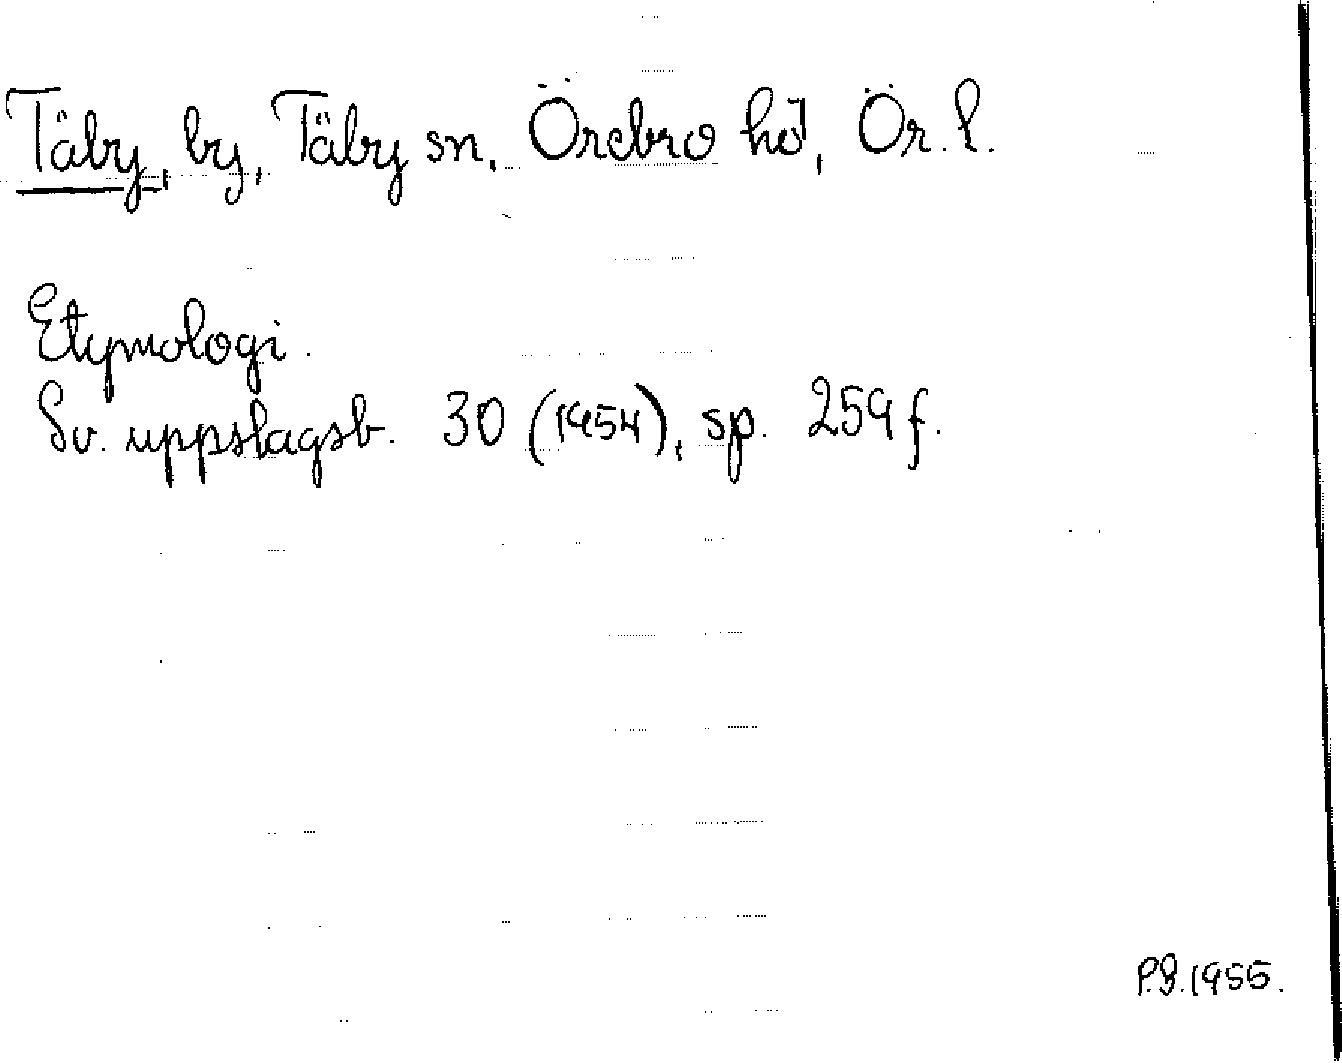 Täby, by, Täby sn, Örebro hd, Ör. l.
Etymologi.
Sv. uppslagsb. 30 (1954), sp. 259 f.
P.G. 1955.